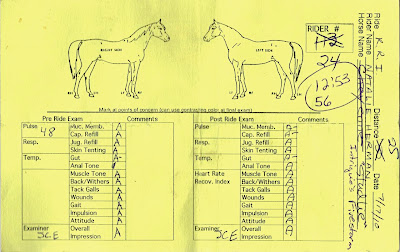 Ride R. R. I Distance 25 Date 7/17/10
Rider Name NATALIE HERMAN
Horse Name
RIDER #
24
12:53
56
RIGHT SIDE
LEFT SIDE
Mark at points of concern (can use contrasting color at final exam)
Pre Ride Exam Comments
Pulse 48 Muc. Memb. A
Cap. Refill A
Resp. Jug. Refill A
Skin Tenting A
Temp. Gut A-
Anal Tone
Muscle Tone A
Back/Withers A
Tack Galls A
Wounds A
Gait A
Impulsion A
Attitude A
Examiner JCE Overall Impression A
Post Ride Exam Comments
Pulse Muc. Memb. A-
Cap. Refill A
Resp. Jug. Refill A
Skin Tenting A
Temp. Gut A-
Anal Tone A
Heart Rate Muscle Tone A
Recov. Index Back/Withers A
Tack Galls A
Wounds A
Gait A
Impulsion A
Attitude A
Examiner JCE Overall Impression A